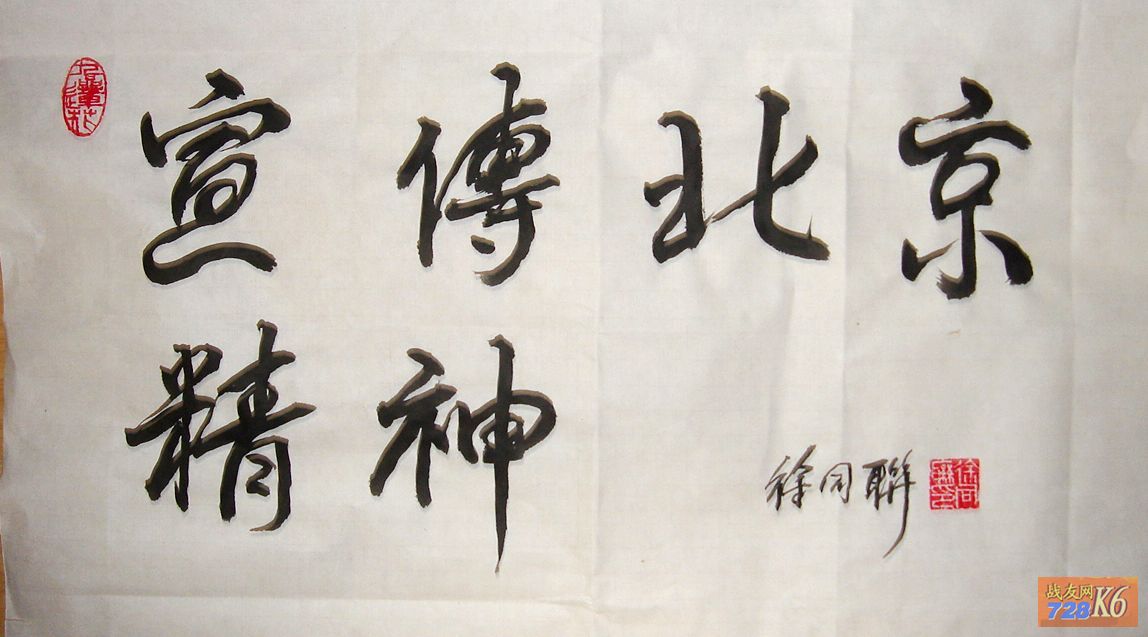 宣傳北京
精神
徐同聯
战友网
728K6